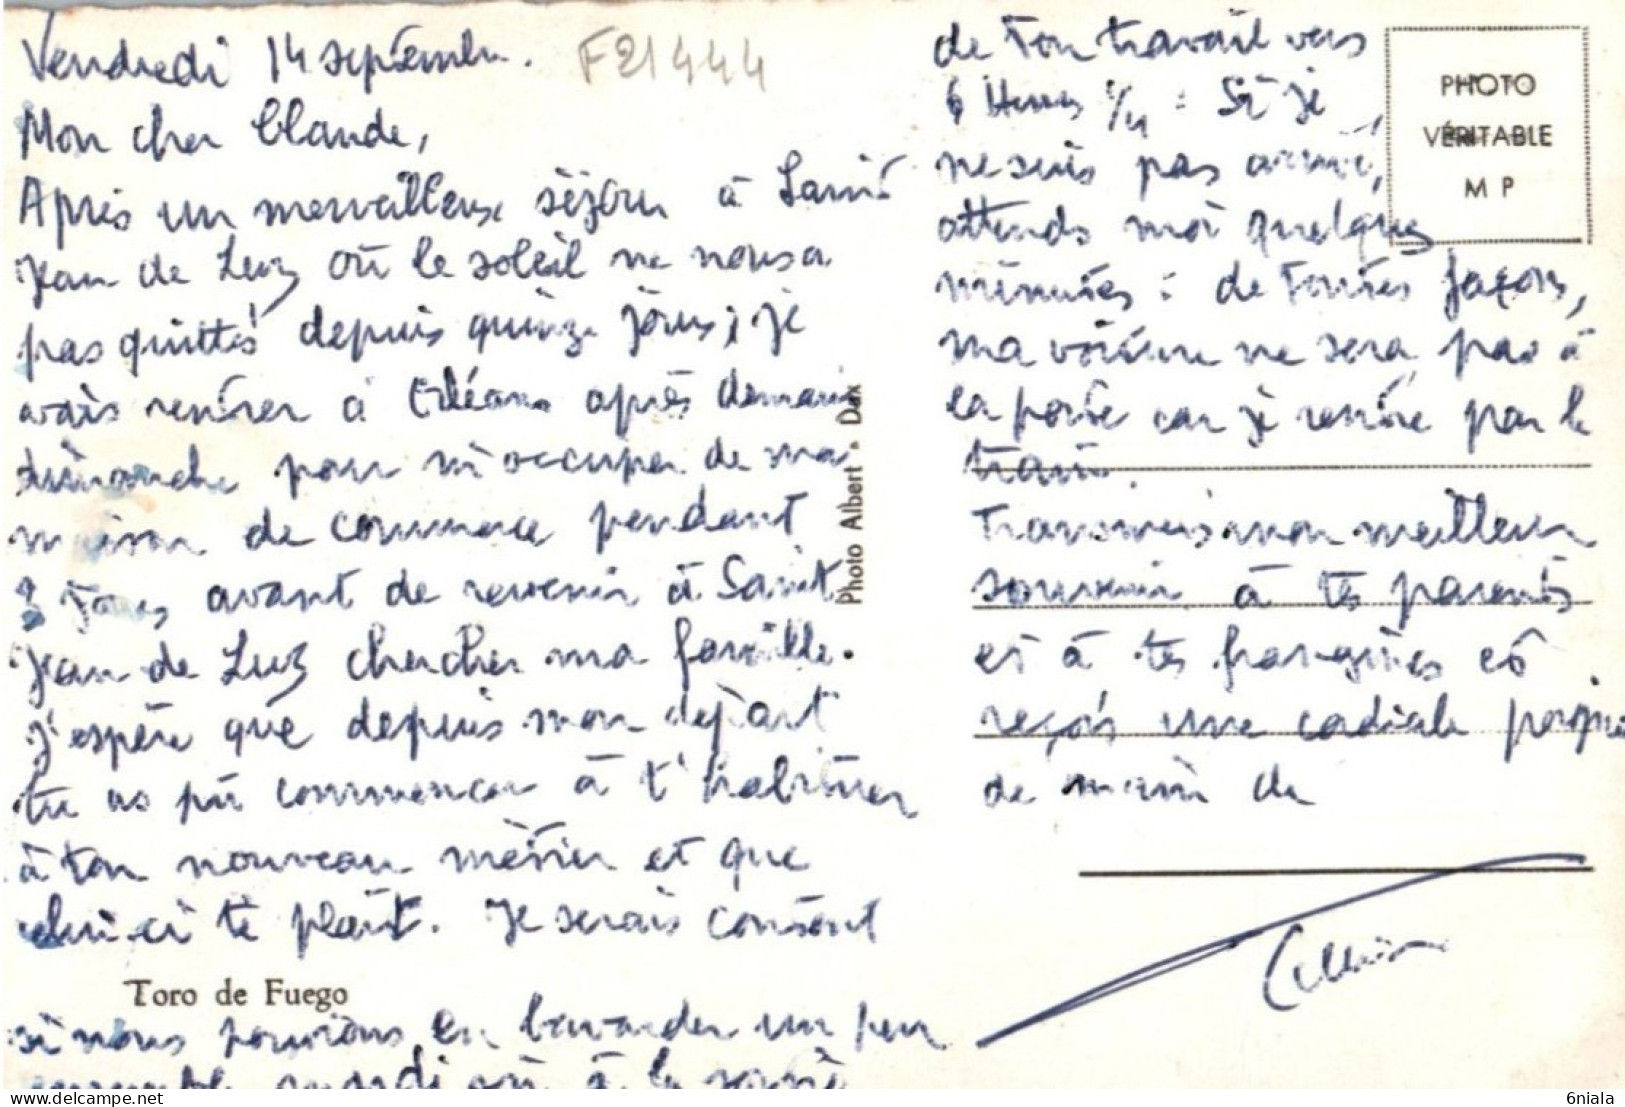 Vendredi 14 septembre.
F21444
Mon cher Claude,
Après un merveilleux séjour à Saint
Jean de Luz où le soleil ne nous a
pas quittés depuis quinze jours, je
vais rentrer à Orléans après demain
dimanche pour m'occuper de ma
maison de commerce pendant
jours avant de revenir à Saint
Jean de Luz chercher ma famille.
J'espère que depuis mon départ
tu as pu commencer à t'habituer
à ton nouveau métier et que
celui-ci te plaît. Je serais content
Toro de Fuego
si nous pouvions en bavarder un peu
ensemble mardi soir à la sortie
de ton travail vers
6 Heures 1/4 : Si je
ne suis pas arrivé,
attends moi quelques
minutes : de toutes façons,
ma voiture ne sera pas à
la porte car je rentre par le
train.
Transmets mon meilleur
souvenir à tes parents
et à tes frangines et
reçois une cordiale poignée
de main de
PHOTO
VÉRITABLE
M P
Photo Albert - Dax
delcampe.net
6niala